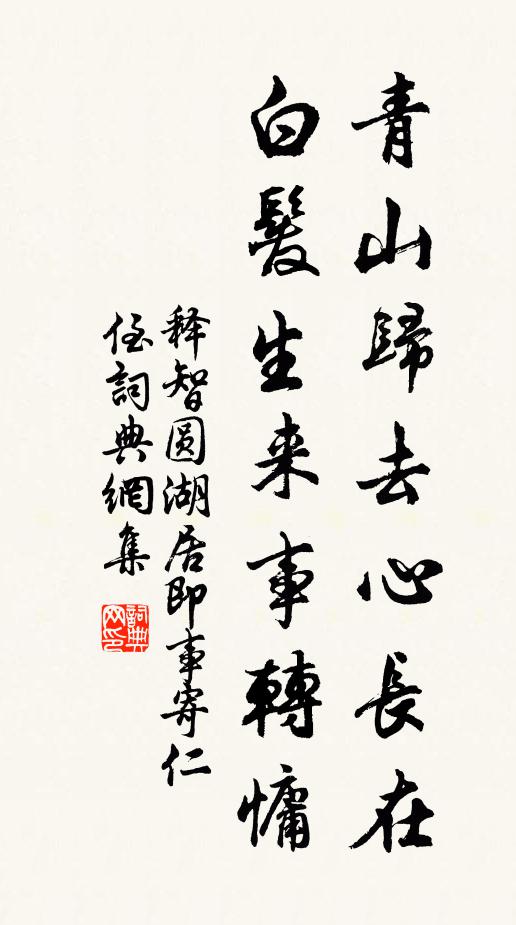 青山歸去心長在
白髮生来事轉慵
释智圆湖居即事寄仁
侄詞典網集
詞典
网印